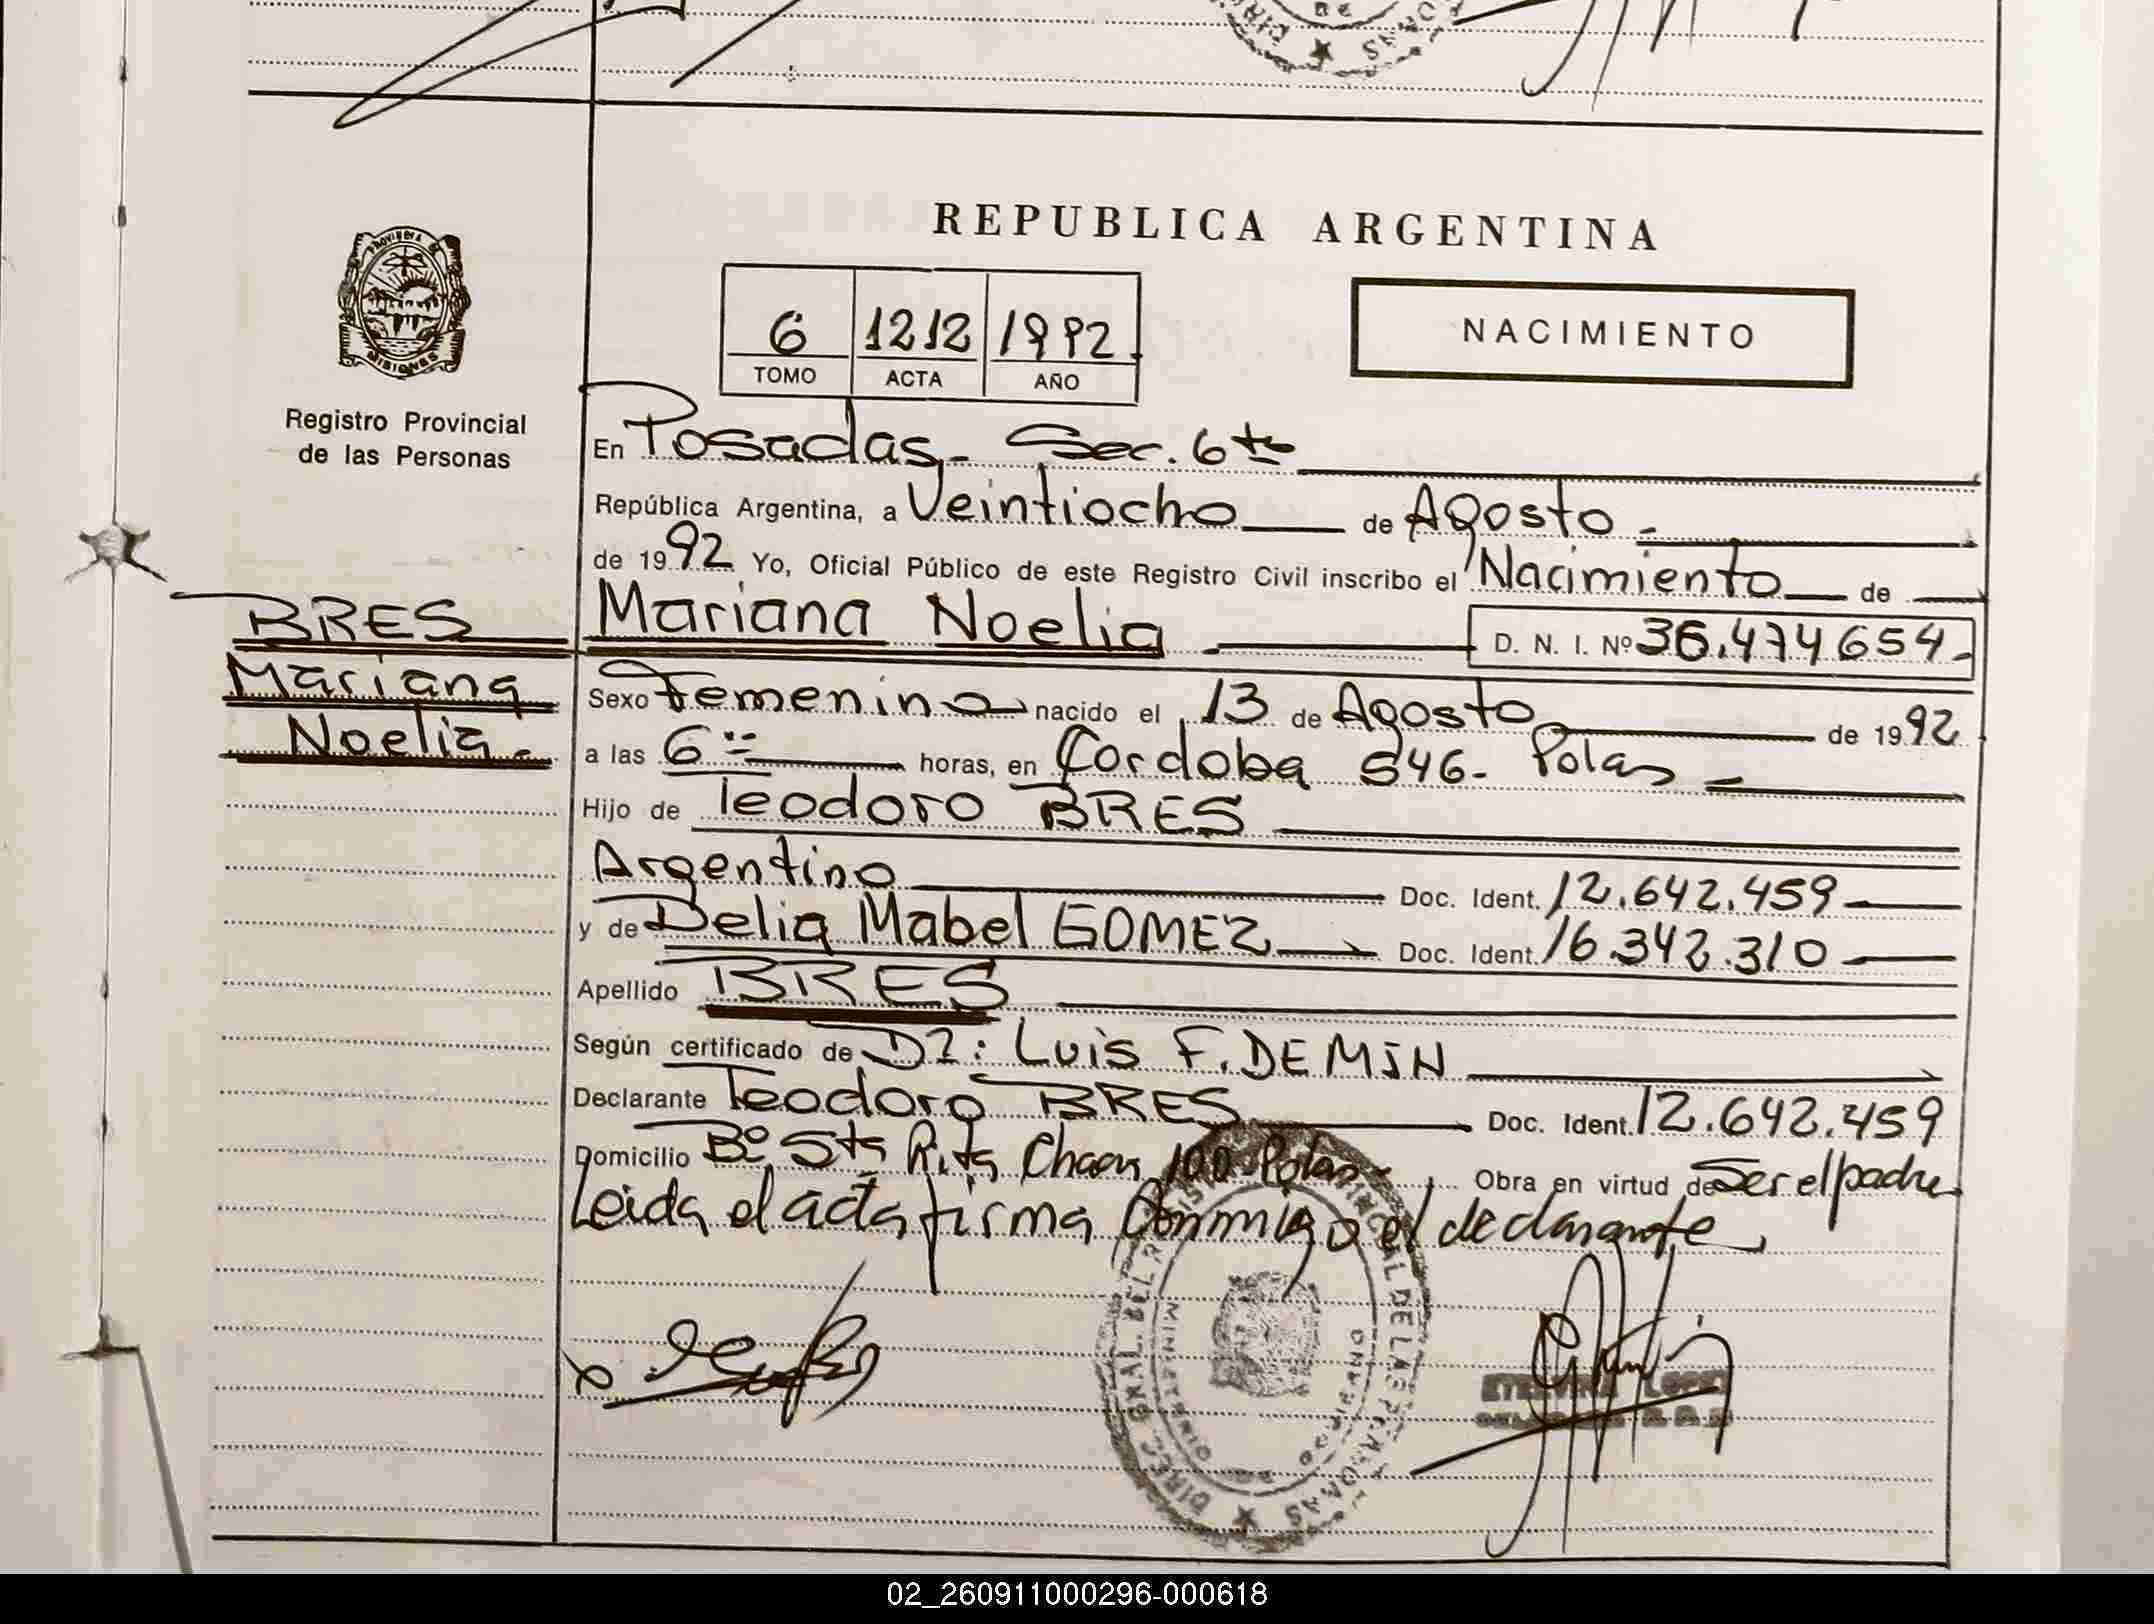 REPUBLICA ARGENTINA
PROVINCIA DE
MISIONES
6 1212 1992
TOMO ACTA AÑO
NACIMIENTO
Registro Provincial
de las Personas
En Posadas - Sec. 6ta
República Argentina, a Veintiocho de Agosto -
de 1992 Yo, Oficial Público de este Registro Civil inscribo el Nacimiento de
BRES
Mariana
Noelia -
Mariana Noelia D. N. I. Nº 36.474654 -
Sexo Femenino nacido el 13 de Agosto de 1992
a las 6 horas, en Cordoba 546 - Pdas -
Hijo de Teodoro BRES
Argentino Doc. Ident. 12.642.459
y de Delia Mabel GOMEZ Doc. Ident. 16.342.310
Apellido BRES
Según certificado de Dr: Luis F. DEMIN
Declarante Teodoro BRES Doc. Ident. 12.642.459
Domicilio Bº Sta Rita Chacra 100 Pdas - Obra en virtud de Ser el padre
Leida el acta firma Conmigo el declarante
DIREC. GRAL. DEL REGISTRO PROVINCIAL DE LAS PERSONAS
MINISTERIO DE GOBIERNO
02_260911000296-000618